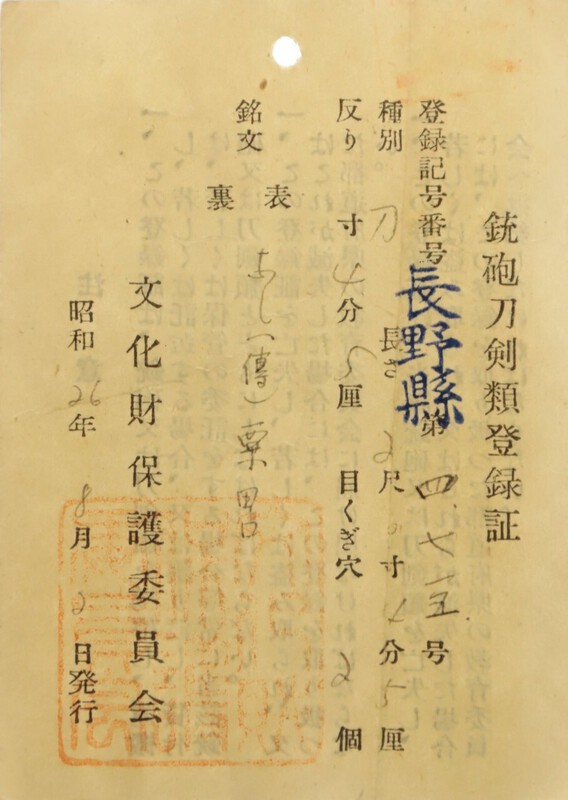 銃砲刀剣類登録証
登録記号番号 長野縣 第四、七一五号
種別 刀 長さ 2尺0寸4分5厘
反り 寸4分5厘 目くぎ穴 2個
銘文 表 むし(傳)粟田口
裏
文化財保護委員会
昭和26年8月2日発行